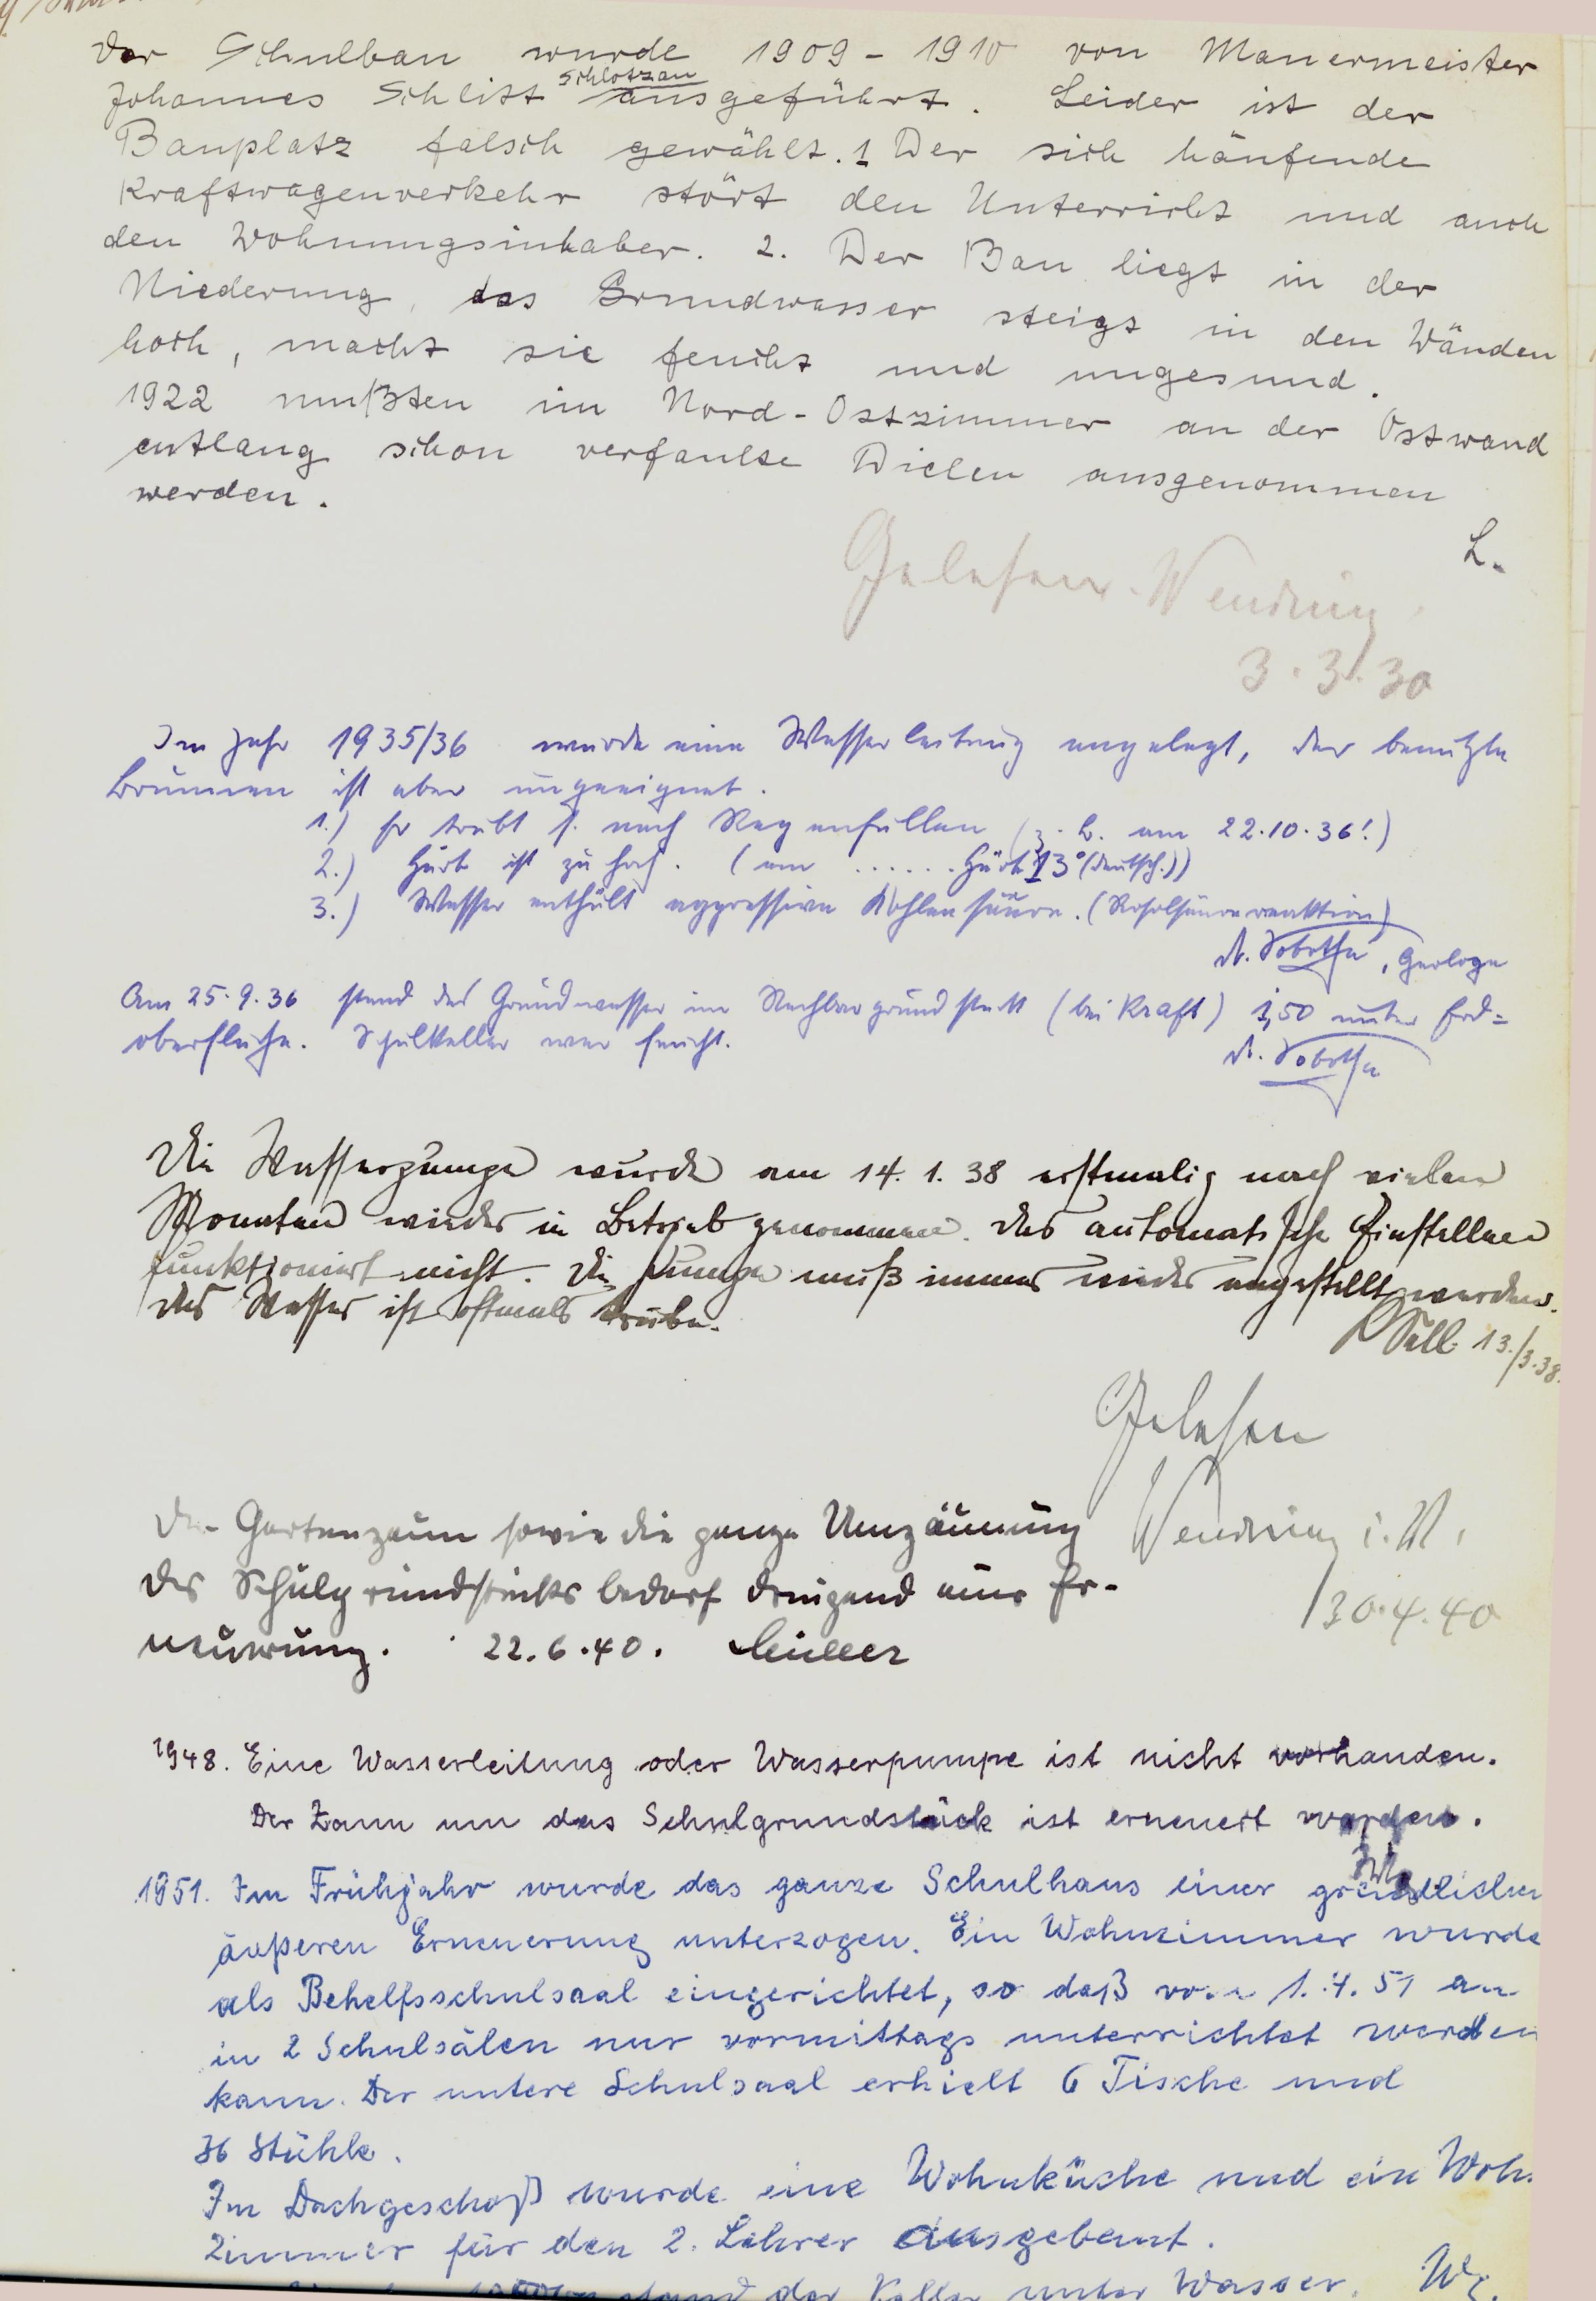 Der Schulbau wurde 1909 - 1910 von Mauermeister
Schlotzau
Johannes Schlitt ausgeführt. Leider ist der
Bauplatz falsch gewählt. 1 Der sich häufende
Kraftwagenverkehr stört den Unterricht und auch
den Wohnungsinhaber. 2. Der Bau liegt in der
Niederung, das Grundwasser steigt in den Wänden
hoch, macht sie feucht und ungesund.
1922 mußten im Nord-Ostzimmer an der Ostwand
entlang schon verfaulte Dielen ausgenommen
werden.
L.
Gelesen. Wendring
3.3.30
Im Jahr 1935/36 wurde eine Wasserleitung angelegt, der benutzte
Brunnen ist aber ungeeignet.
1.) Er trübt s. nach Regenfällen (z. B. am 22.10.36!)
2.) Härte ist zu hoch. (am ...... Härte 13° (deutsch.))
3.) Wasser enthält aggressive Kohlensäure. (Rosolsäurereaktion)
Dr. Sobotha, Geologe
Am 25.9.36 stand das Grundwasser im Nachbargrundstück (bei Kraft) 1,50 unter Erd=
oberfläche. Schulkeller war feucht.
Dr. Sobotha
Die Wasserpumpe wurde am 14. 1. 38 erstmalig nach vielen
Monaten wieder in Betrieb genommen. Das automatische Einstellen
funktioniert nicht. Die Pumpe muß immer wieder angestellt werden.
Das Wasser ist oftmals trübe.
13./3.38.
Gelesen
Wendring
30.4.40
Der Gartenzaun sowie die ganze Umzäunung
des Schulgrundstücks bedarf dringend einer Er-
neuerung. 22.6.40. Müller
1948. Eine Wasserleitung oder Wasserpumpe ist nicht vorhanden.
Der Zaun um das Schulgrundstück ist erneuert worden.
1951. Im Frühjahr wurde das ganze Schulhaus einer gründlichen
äußeren Erneuerung unterzogen. Ein Wohnzimmer wurde
als Behelfsschulsaal eingerichtet, so daß vom 1.4.51 an
in 2 Schulsälen nur vormittags unterrichtet werden
kann. Der untere Schulsaal erhielt 6 Tische und
36 Stühle.
Im Dachgeschoß wurde eine Wohnküche und ein Wohn
Zimmer für den 2. Lehrer ausgebaut.
stand der Keller unter Wasser.